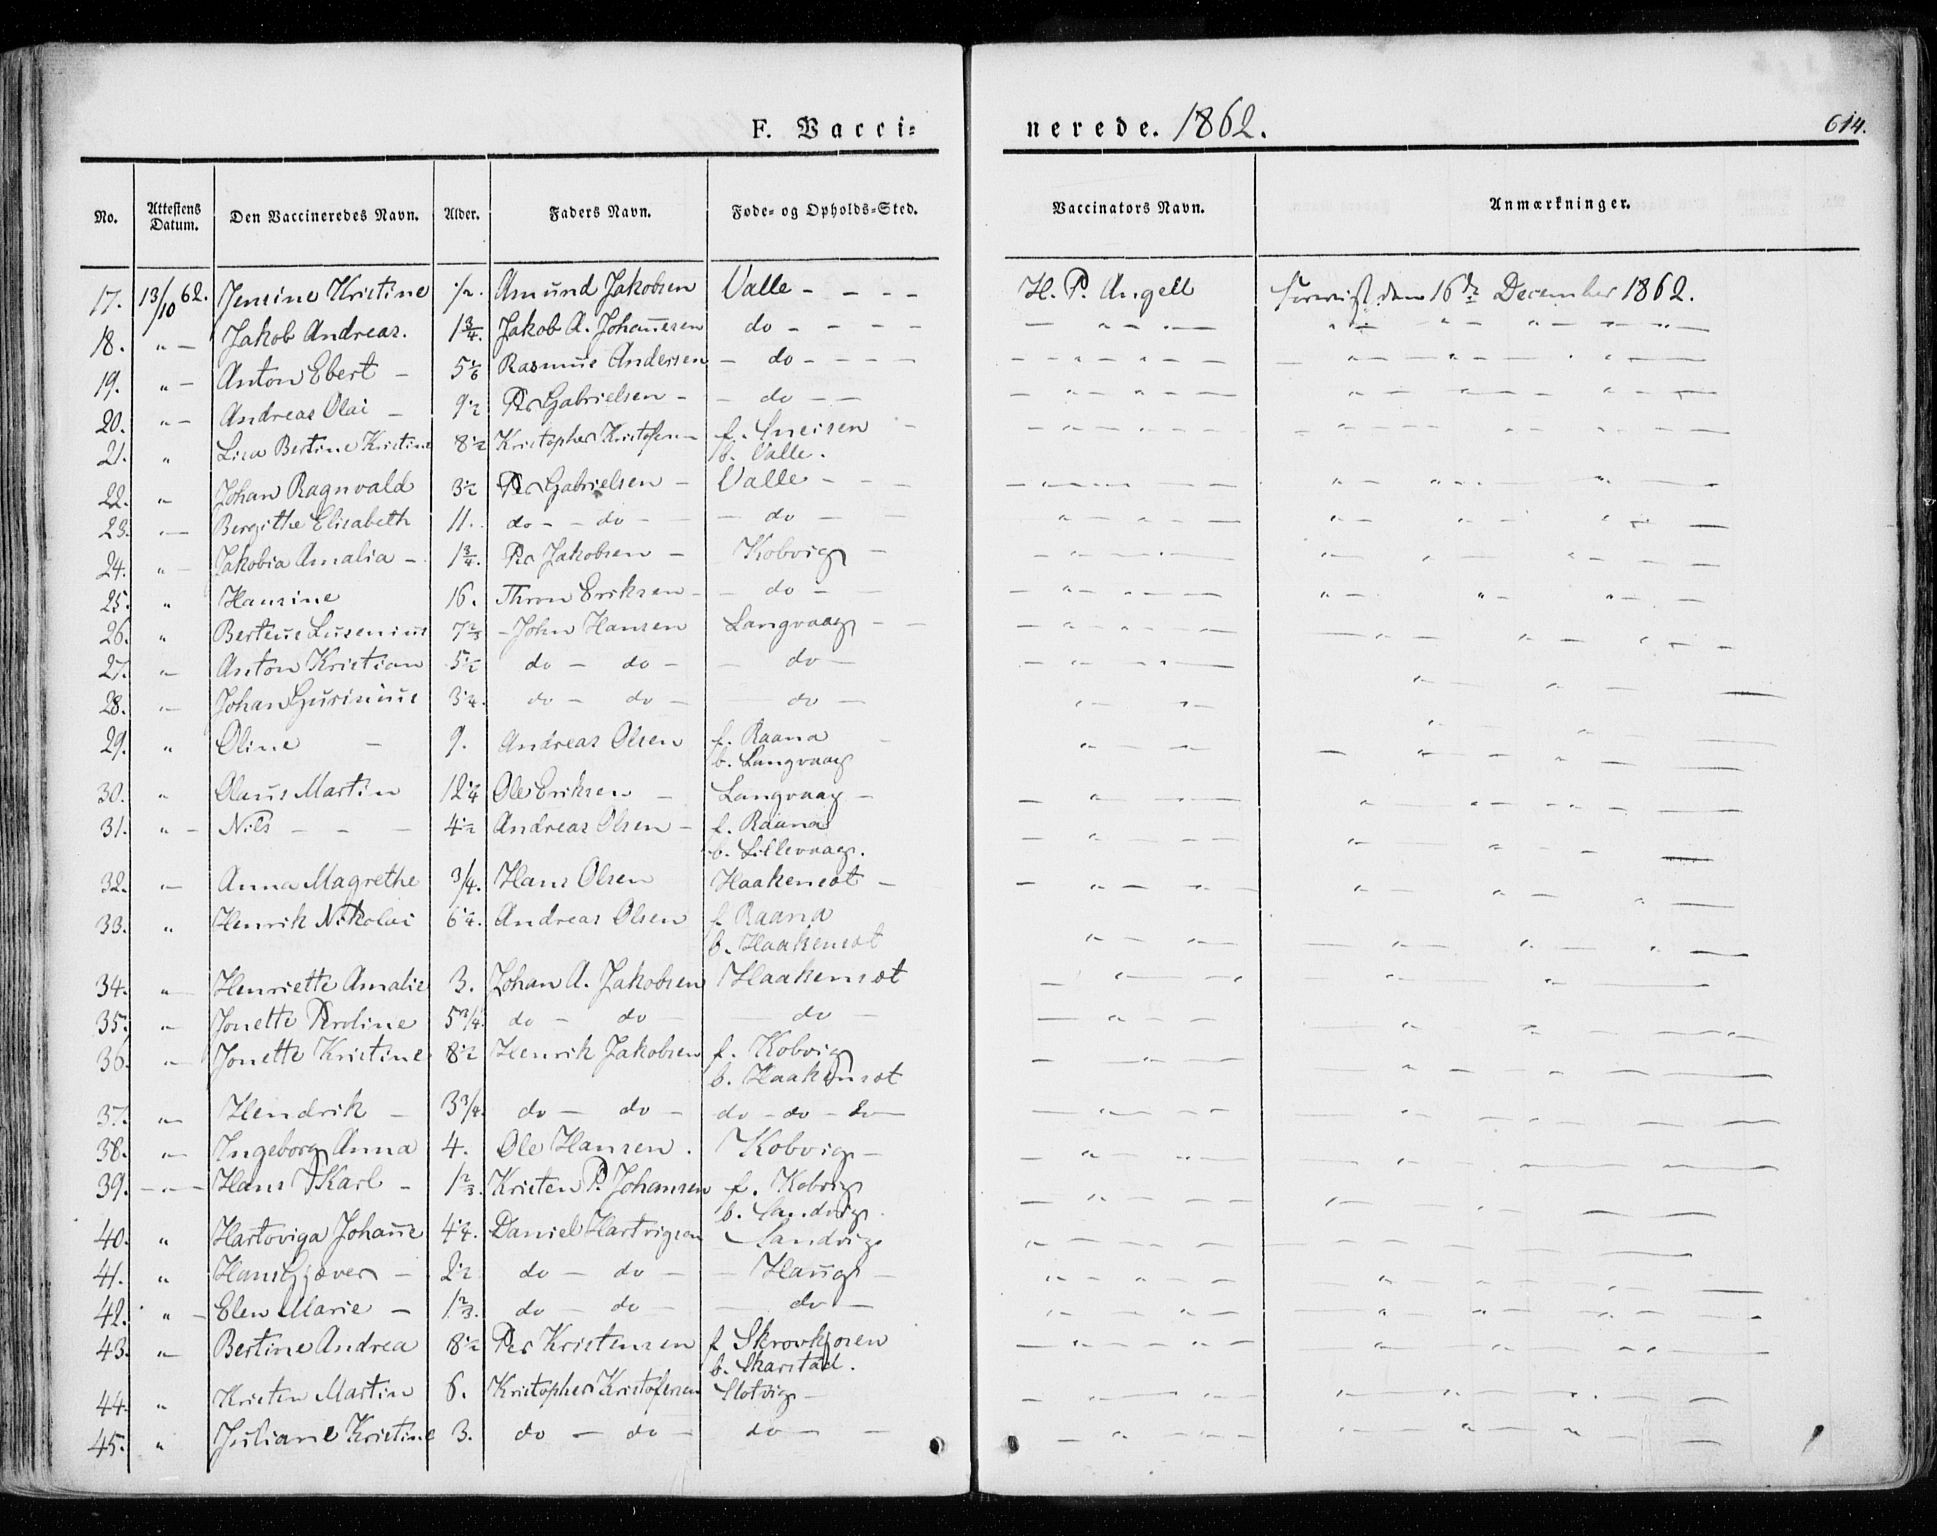 F. Vacci=
nerede. 1862.
614.
No. Attestens Datum. Den Vaccineredes Navn. Alder. Faders Navn. Føde- og Opholds-Sted. Vaccinators Navn. Anmærkninger.
17. 13/10 62. Jensine Kristine 1/2. Amund Jakobsen Valle - - - - H. P. Angell Forevist den 16de December 1862.
18. " - Jakob Andreas. 1 3/4. Jakob A. Johannesen do - - - -
19. " - Anton Ebert - 5 1/6 Rasmus Andersen - do - - - -
20. " - Andreas Olai - 9 1/2 Per Gabrielsen - - do - -
21. " Lisa Bertine Kristine 8 1/2 Kristopher Kristofersen f. Sneisen
b. Valle.
22. " - Johan Ragnvald 3 1/2 Per Gabrielsen - Valle - - -
23. " - Bergithe Elisabeth 11. do - - do - - do - -
24. " - Jakobia Amalia - 1 3/4. Per Jakobsen - Kobvig -
25. " Hansine 16. Thron Eriksen - - do - -
26. " Berteus Lusenius 7 2/3 - John Hansen Langvaag - -
27. " - Anton Kristian 5 1/2 do - do - - do -
28. " - Johan 3 1/4. do - do - - do -
29. " Oline - 9. Andreas Olsen f. Raana -
b. Langvaag
30. " Olaus Martin 12 1/4 Ole Eriksen - Langvaag -
31. " - Nils - - - 4 1/2 Andreas Olsen - f. Raana
b. Lillevaag.
32. " - Anna Magrethe 3/4. Hans Olsen Haakensøt -
33. " Henrik Nikolai 6 1/4. Andreas Olsen f. Raana
b. Haakensøt
34. " - Henriette Amalie 3. Johan A. Jakobsen Haakensøt
35. " - Jonette Peroline 5 3/4. do - do - - do -
36. " - Jonette Kristine 8 1/2 Henrik Jakobsen f. Kobvig
b. Haakensøt
37. " - Hendrik - 3 3/4. do - do - do - do - do -
38. " - Ingeborg Anna 4. Ole Hansen. Kobvig -
39. - " - Hans Karl - 1 2/3. Kristen P. Johansen f. Kobvig
b. Sandvig.
40. " Hartviga Johanne 4 1/4. Daniel Hartvigsen Sandvig
41. " Hans Gjæver - 2 1/2 do - do - - Haug -
42. " - Elen Marie - 1 2/3. do - do - - do -
43. " - Bertine Andrea 8 1/2 Per Kristensen f. Skrovkjosen
b. Skarstad.
44. " Kristen Martin 6. Kristopher Kristofersen Slotvig -
45. " Juliane Kristine 3. do - do - do - -